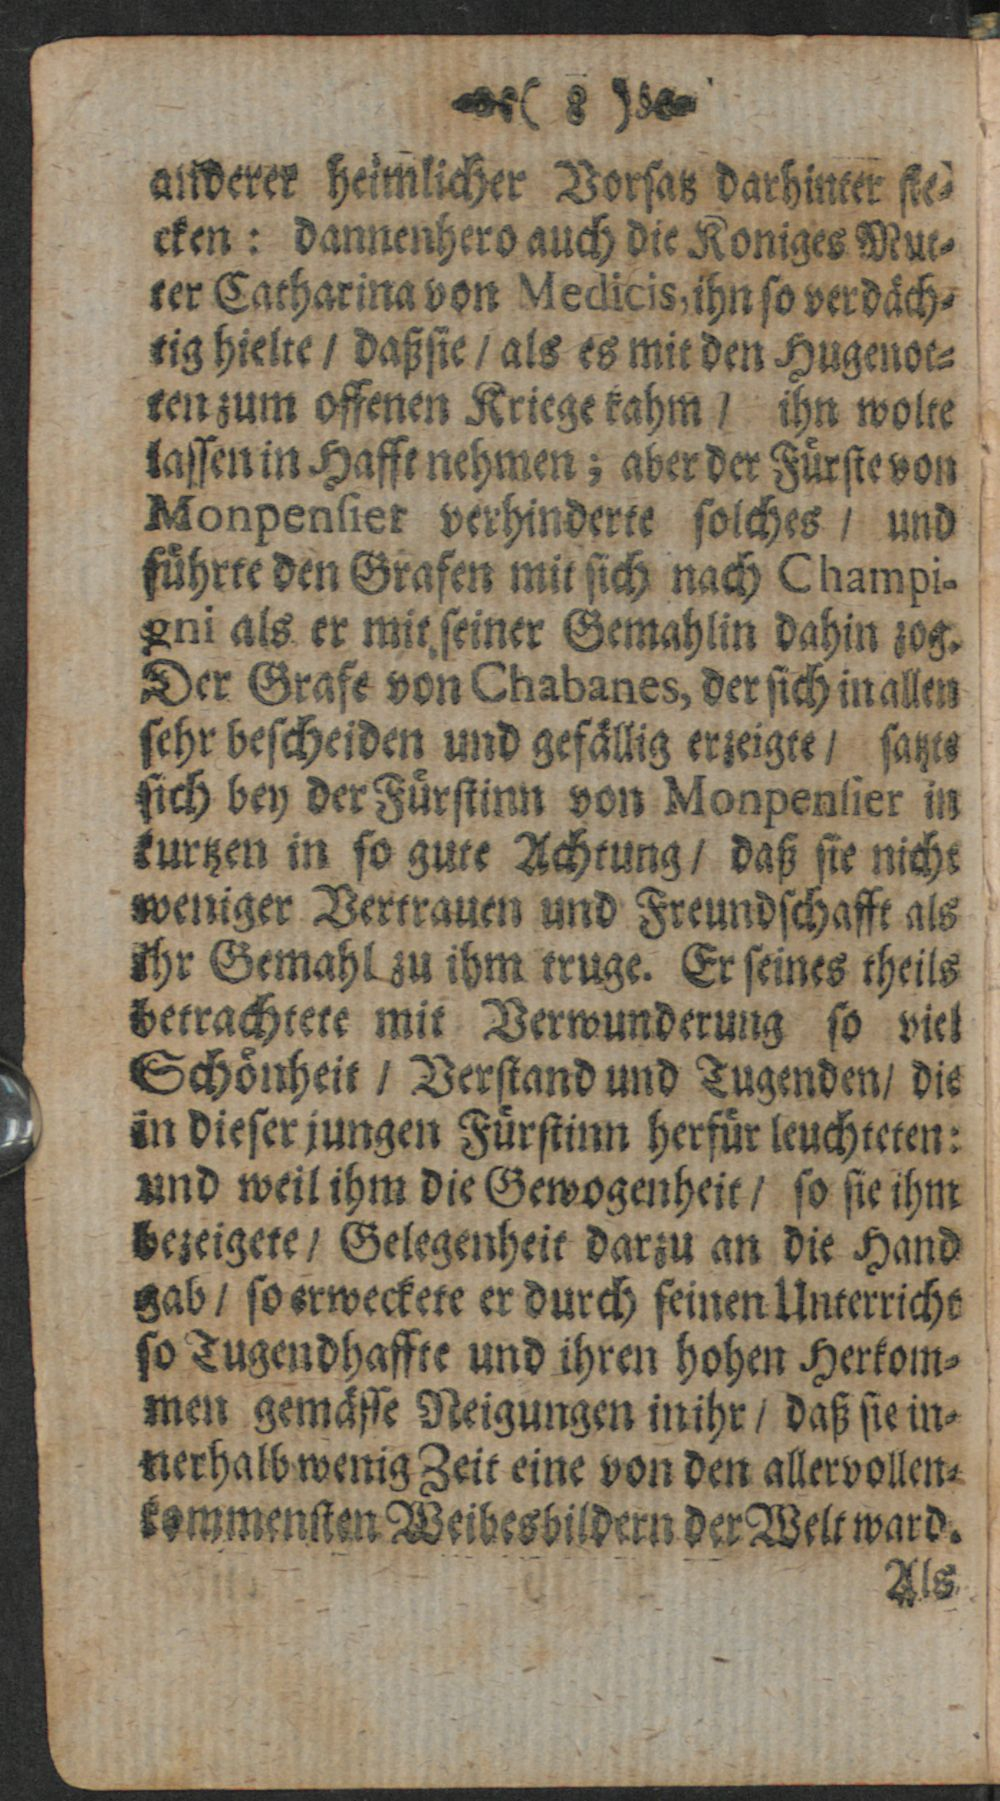 ( 8 )
anderer heimlicher Vorsatz darhinter ste-
cken: dannenhero auch die Koniges Mut-
ter Catharina von Medicis, ihn so verdäch-
tig hielte / daß sie / als es mit den Hugenot-
ten zum offenen Kriege kahm / ihn wolte
lassen in Hafft nehmen; aber der Fürste von
Monpensier verhinderte solches / und
führte den Grafen mit sich nach Champi-
gni als er mit seiner Gemahlin dahin zog.
Der Grafe von Chabanes, der sich in allen
sehr bescheiden und gefällig erzeigte / satzte
sich bey der Fürstinn von Monpensier in
kurtzen in so gute Achtung / daß sie nicht
weniger Vertrauen und Freundschafft als
Ihr Gemahl zu ihm truge. Er seines theils
betrachtete mit Verwunderung so viel
Schönheit / Verstand und Tugenden / die
in dieser jungen Fürstinn herfür leuchteten:
und weil ihm die Gewogenheit / so sie ihm
bezeigete / Gelegenheit darzu an die Hand
gab / so erweckete er durch seinen Unterricht
so Tugendhaffte und ihren hohen Herkom-
men gemässe Neigungen in ihr / daß sie in-
nerhalb wenig Zeit eine von den allervollen-
kommensten Weibesbildern der Welt ward.
Als